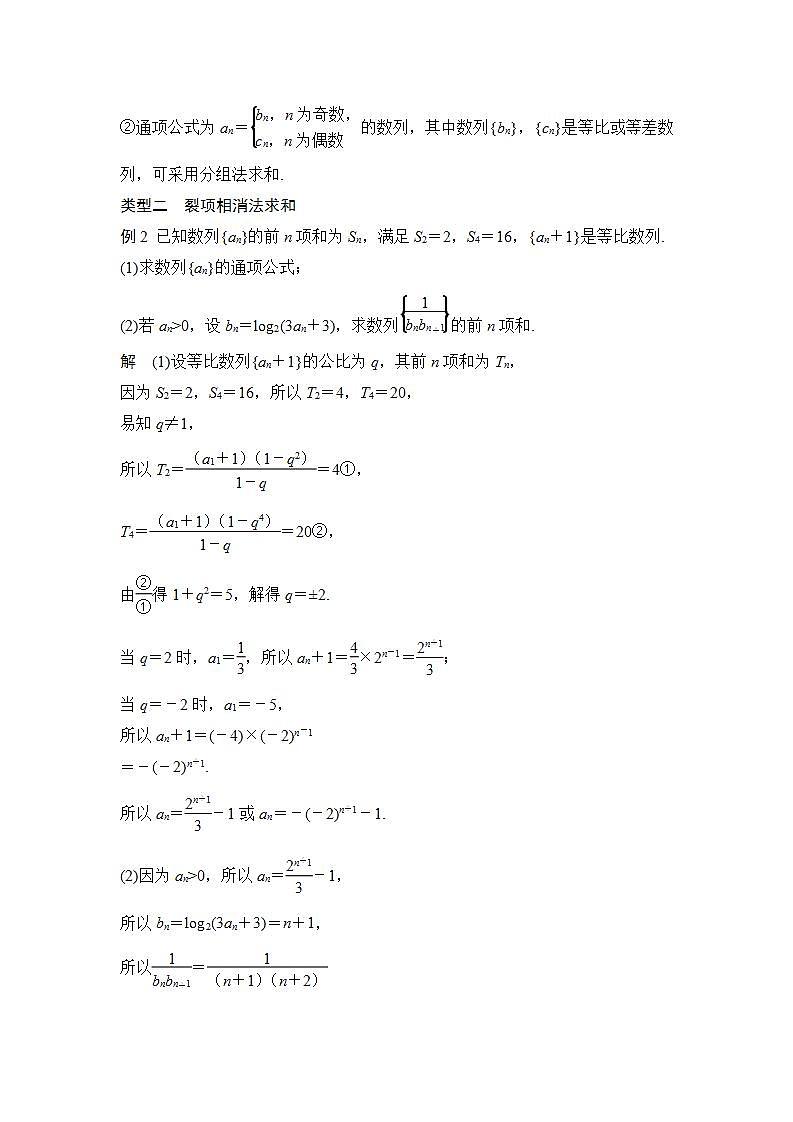 ②通项公式为 aₙ＝{bₙ，n 为奇数，
cₙ，n 为偶数 的数列，其中数列{bₙ}，{cₙ}是等比或等差数
列，可采用分组法求和.
类型二　裂项相消法求和
例 2 已知数列{aₙ}的前 n 项和为 Sₙ，满足 S₂＝2，S₄＝16，{aₙ＋1}是等比数列.
(1)求数列{aₙ}的通项公式；
(2)若 aₙ>0，设 bₙ＝log₂(3aₙ＋3)，求数列{1/(bₙbₙ₊₁)}的前 n 项和.
解　(1)设等比数列{aₙ＋1}的公比为 q，其前 n 项和为 Tₙ，
因为 S₂＝2，S₄＝16，所以 T₂＝4，T₄＝20，
易知 q≠1，
所以 T₂＝（a₁＋1）（1－q²）/(1－q)＝4①，
T₄＝（a₁＋1）（1－q⁴）/(1－q)＝20②，
由②/①得 1＋q²＝5，解得 q＝±2.
当 q＝2 时，a₁＝1/3，所以 aₙ＋1＝4/3×2ⁿ⁻¹＝2ⁿ⁺¹/3；
当 q＝－2 时，a₁＝－5，
所以 aₙ＋1＝(－4)×(－2)ⁿ⁻¹
＝－(－2)ⁿ⁺¹.
所以 aₙ＝2ⁿ⁺¹/3－1 或 aₙ＝－(－2)ⁿ⁺¹－1.
(2)因为 aₙ>0，所以 aₙ＝2ⁿ⁺¹/3－1，
所以 bₙ＝log₂(3aₙ＋3)＝n＋1，
所以1/(bₙbₙ₊₁)＝1/（n＋1）（n＋2）